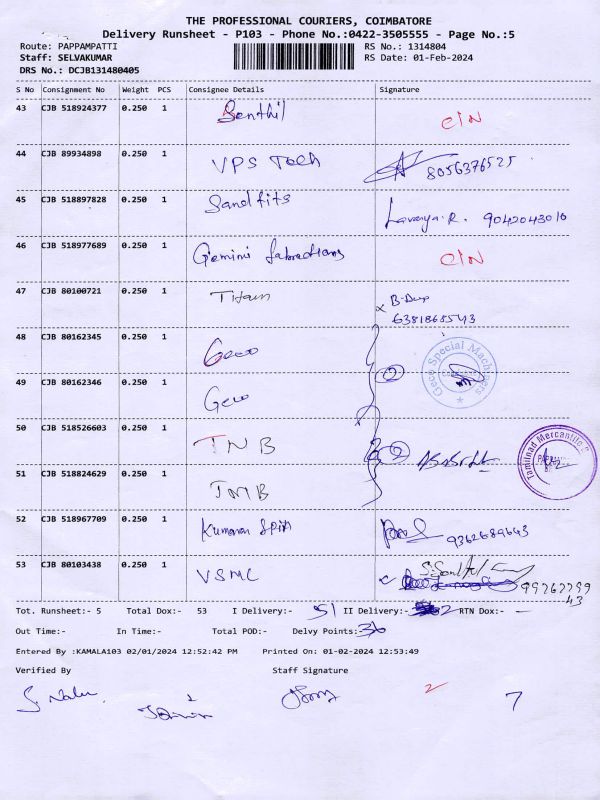 THE PROFESSIONAL COURIERS, COIMBATORE
Delivery Runsheet - P103 - Phone No.:0422-3505555 - Page No.:5
Route: PAPPAMPATTI RS No.: 1314804
Staff: SELVAKUMAR RS Date: 01-Feb-2024
DRS No.: DCJB131480405
S No Consignment No Weight PCS Consignee Details Signature
43 CJB 518924377 0.250 1 Senthil C/N
44 CJB 89934898 0.250 1 VPS Tech 8056376525
45 CJB 518897828 0.250 1 Sandfits Lavanya.R. 9042043010
46 CJB 518977689 0.250 1 Gemini fabrications C/N
47 CJB 80100721 0.250 1 Titan
6381868543
48 CJB 80162345 0.250 1 Geco Geco Special Machines
49 CJB 80162346 0.250 1 Geco
50 CJB 518526603 0.250 1 TNB 2 Tamilnad Mercantile
51 CJB 518824629 0.250 1 TMB
52 CJB 518967709 0.250 1 Kumaran Spin 9362689643
53 CJB 80103438 0.250 1 VSMC 99767799
43
Tot. Runsheet:- 5 Total Dox:- 53 I Delivery:- 51 II Delivery:- 2 RTN Dox:- —
Out Time:- In Time:- Total POD:- Delvy Points:- 36
Entered By :KAMALA103 02/01/2024 12:52:42 PM Printed On: 01-02-2024 12:53:49
Verified By Staff Signature
2 7